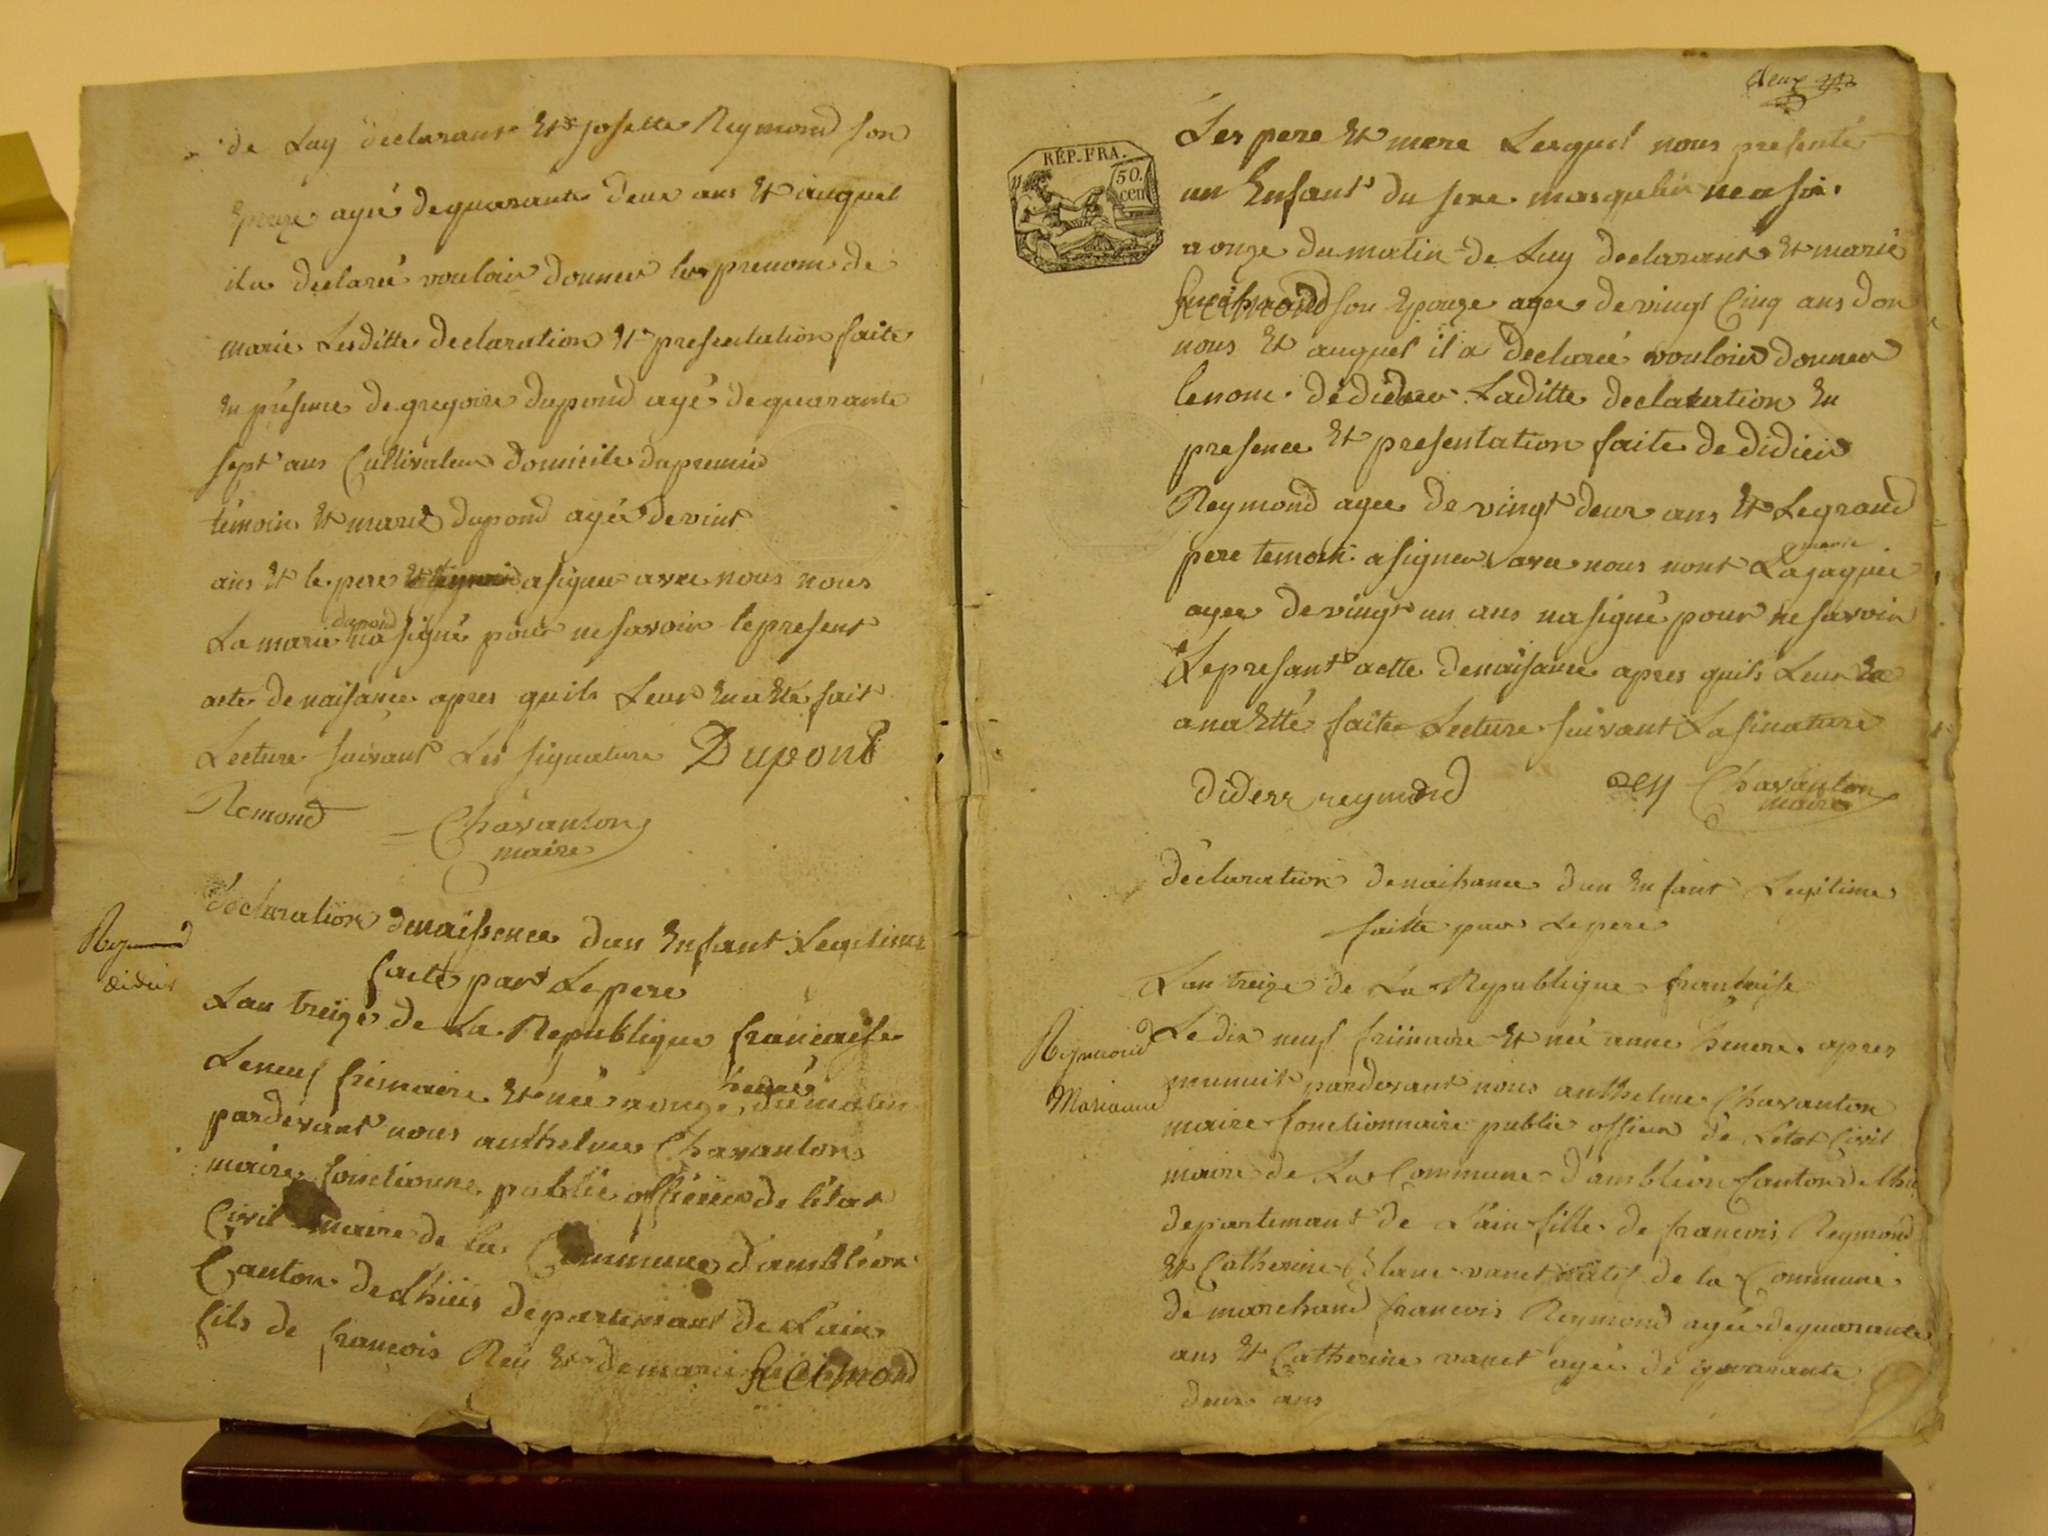 de Luy declarant Et josette Reymond son
Epouze agée de quarante deux ans Et auquel
il a declaré vouloir donner les prenom de
marie Lesditte declaration Et presentation faite
En présence de gregoire dupond agé de quarante
sept ans Cultivateur domicile du premier
témoin Et marie dupond agée de vint
ans Et le pere a signer avec nous nous
dupond
La marie na signé pour ne savoir le present
acte de naisance apres quils Leur En a Eté fait
Lecture suivant Les signature Dupont
Remond Chavanton
maire
déclaration de naissence dun Enfant Legitime
faite par Le pere
Reymond
didier
Lan treize de La Republique francaise
Le neuf frimaire Et née a onze heures du matin
pardevant nous anthelme Chavanton
maire fonctionne public officier de létat
Civil maire de la Commune d'ambléon
Canton de Lhuis departemant de Lain
fils de francois Rey Et de marie Reimond
deux
RÉP. FRA.
50.
cen
Les pere Et mere Lesquel nous presenté
un Enfant du sexe masqulin
a onze du matin de Luy declarant Et marie
Reimond son Epouze agee de vingt Cinq ans don
nous Et auquel il a declareé vouloir donner
le nom de didier Laditte declaration En
presence Et presentation faite de didier
Reymond agee de vingt deux ans Et Le grand
pere temoin a signer avec nous nont La jaquie
marie
agee de vingt un ans na signé pour ne savoir
Le presant actte de naisance apres quils Leur En
ana Etté faite Lecture suivant La sinature
didier reymond Rey Chavanton
maire
déclaration de naisance dun Enfant Legitime
faitte par Le pere
Lan treize de La Republique francaise
Reymond
Mariaine
Le dix neuf friimaire Et née anne heure apres
minuit pardevant nous anthelme Chavanton
maire fonctionnaire public officier de Letat Civil
maire de La Commune d'ambléon Canton de Lhui
departemant de Lain fille de francois Reymond
Et Catherine vanet natif de la Commune
de marchand francois Reymond agée de quarante
ans Et Catherine vanet agée de quarante
deux ans